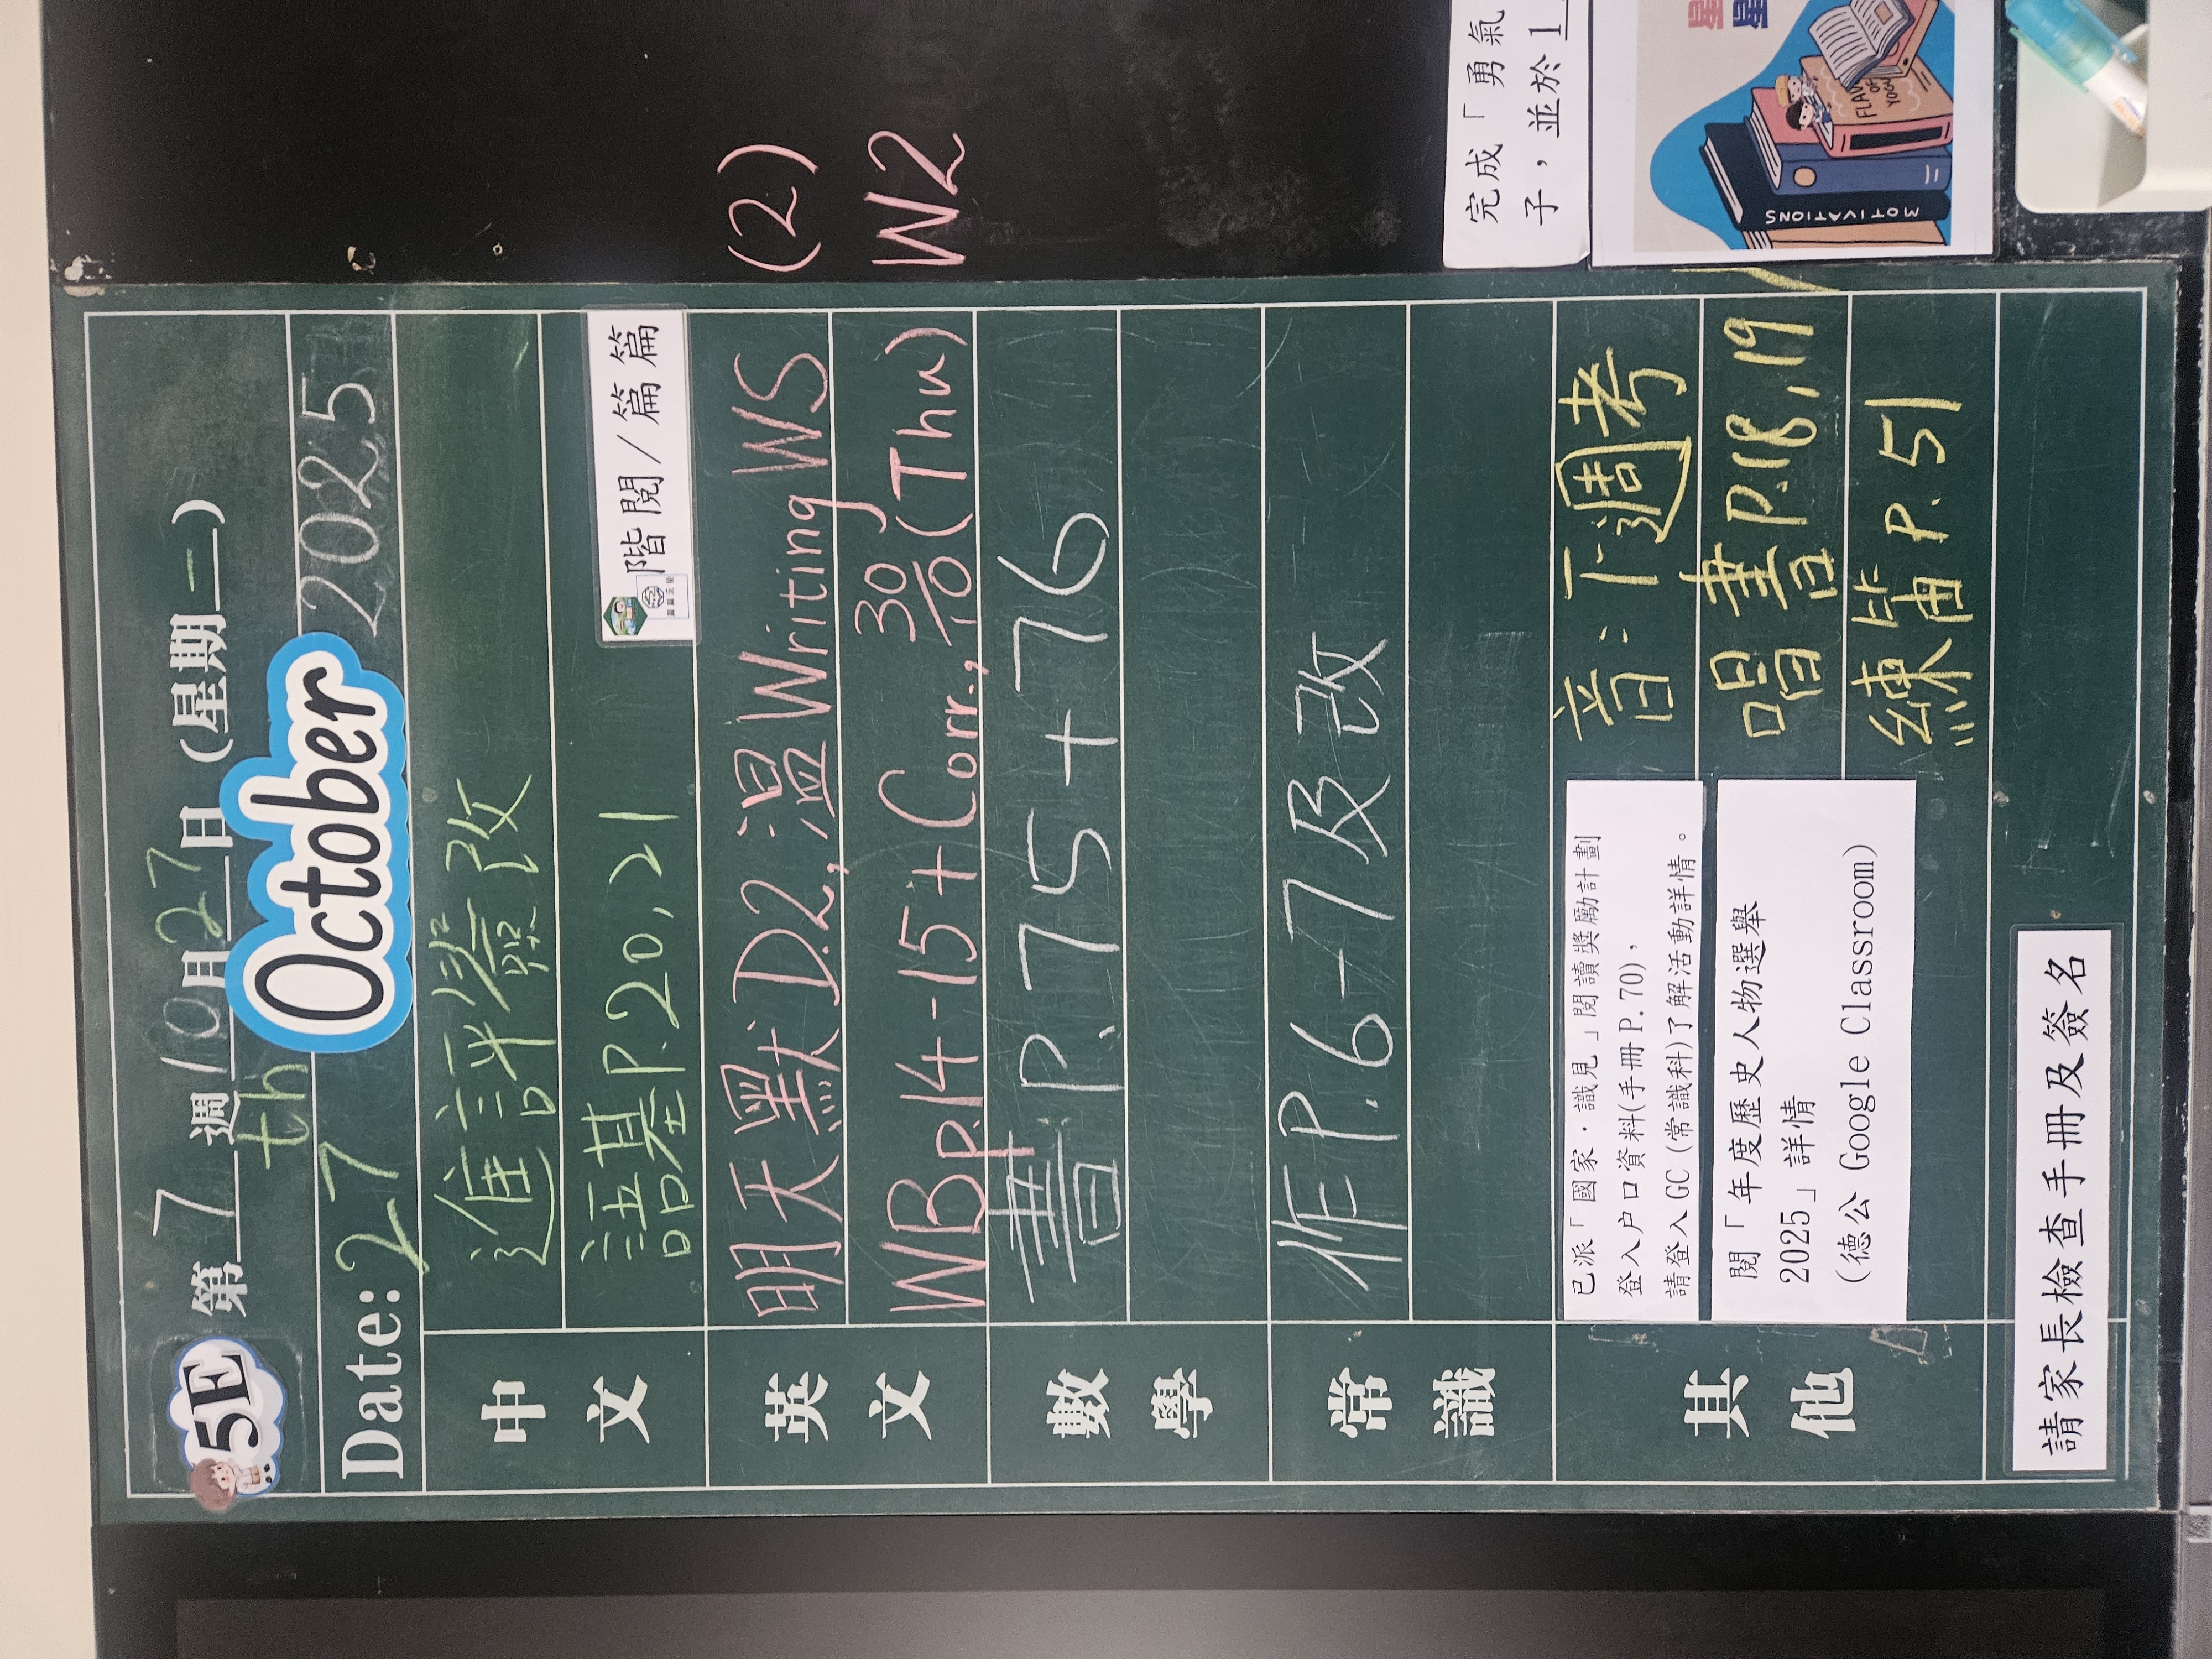 5E 第 7 週 10 月 27 日 (星期一)
Date: 27th October 2025
中文
進評簽改
語基P.20,21
階閱/篇篇
英文
明天默D.2,溫Writing WS (2)
WBp.14-15+Corr., 30/10(Thu) W2
數學
書P.75+76
常識
作P.6-7及改
其他
已派「國家·識見」閱讀獎勵計劃
登入户口資料(手冊P.70),
請登入GC (常識科)了解活動詳情。
閱「年度歷史人物選舉
2025」詳情
(德公 Google Classroom)
音:下週考
唱書P.18,19
練笛P.51
請家長檢查手冊及簽名
完成「勇氣
子,並於1
MOTIVATIONS